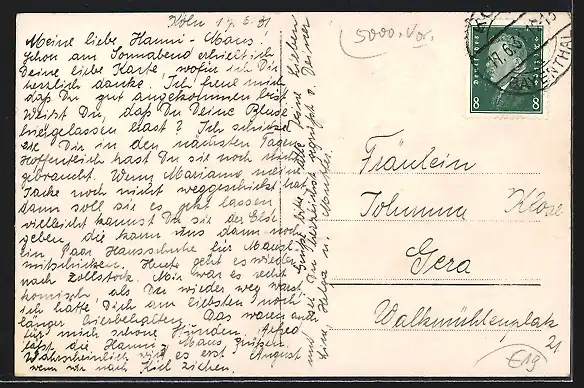 Köln 17.6.31
Meine liebe Hanni-Maus!
Schon am Sonnabend erhielt ich
Deine liebe Karte, wofür ich Dir
herzlich danke. Ich freue mich
daß Du gut angekommen bist
Weißt Du, daß Du Deine Bluse
hiergelassen hast? Ich schicke
sie Dir in den nächsten Tagen
Hoffentlich hast Du sie noch nicht
gebraucht. Wenn Marianne meine
Jacke noch nicht weggeschickt hat
dann soll sie es gehn lassen
vielleicht kannst Du sie der Elst
geben, die kann uns dann noch
ein Paar Hausschuhe für Mausl
mitschicken. Heute geht es wieder
nach Zollstock. Mir war es recht
komisch, als Du wieder weg warst
ich hätte Dich am liebsten noch
länger hierbehalten. Das waren auch
für mich schöne Stunden.
läßt die Hanni-Maus grüßen.
Wahrscheinlich wird es erst August
wenn wir nach Kiel ziehen.
Grüße bitte alle seine Lieben
und sei Du herzlichst gegrüßt v. Deiner
Helga u.
5000. Vor.
8 8
17.6.31
Fräulein
Johanna Klose
Gera
Walkmühlenplatz
21
€19